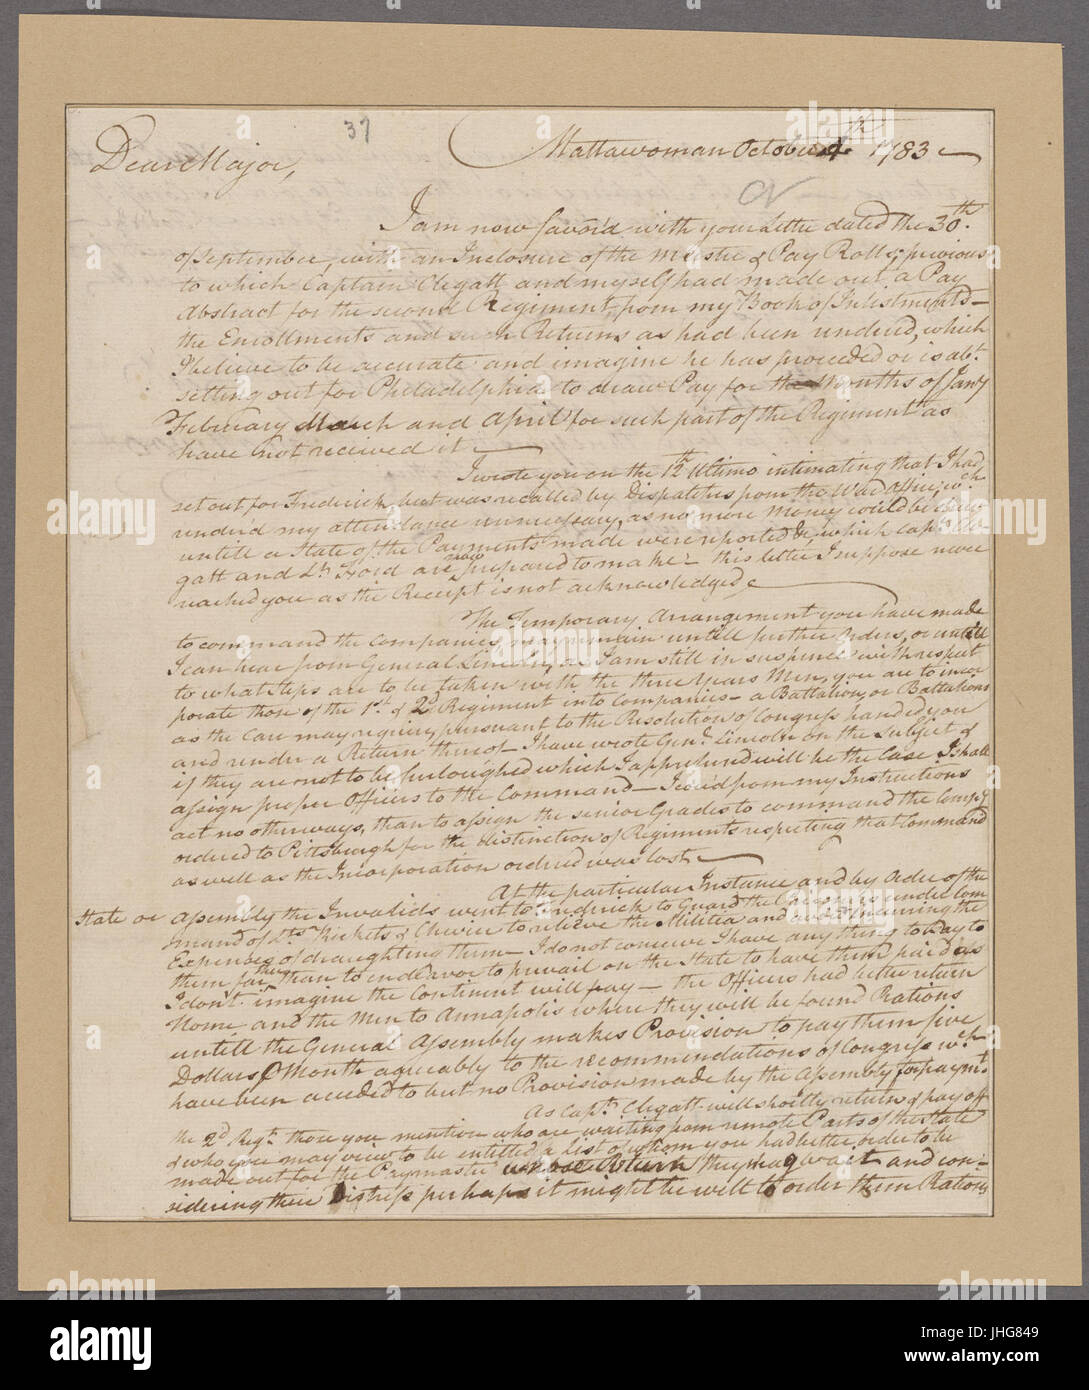 37
Mattawoman October 4th 1783
Dear Major,
I am now favor'd with your Letter dated the 30th
of September, with an Inclosure of the Muster & Pay Rolls; previous
to which Captain Clegatt and myself had made out a Pay
Abstract for the second Regiment, from my Book of Inlistments—
the Enrollments and such Returns as had been rendered, which
I believe to be accurate and imagine he has proceeded or is abt.
setting out for Philadelphia to draw Pay for the Months of Jany
February March and April for such part of the Regiment as
have not received it—
I wrote you on the 12th Ultimo intimating that I had
set out for Frederick, but was recalled by Dispatches from the War Office, wch
renderd my attendance unnecessary, as no more money would be
untill a State of the Payments made were reported &c, which Captn. Cle-
gatt and Lt. Hord are now prepared to make— this letter I suppose never
reached you as the Receipt is not acknowledged—
The Temporary Arrangement you have made
to command the Companies may remain untill further Orders, or untill
I can hear from General Lincoln, as I am still in suspence with respect
to what steps are to be taken with the three Years Men, you are to incor
porate those of the 1st. & 2d Regiment into Companies— a Battalion, or Battalions
as the Case may require, pursuant to the Resolution of Congress handed you
and render a Return thereof— I have wrote Genl. Lincoln on the Subject &
if they are not to be furloughed which I apprehend will be the Case I shall
assign proper Officers to the Command— I could from my Instructions
act no otherways, than to assign the senior Grades to command the Compy
ordered to Pittsburgh for the distinction of Regiments respecting that Command
as well as the Incorporation ordered was lost—
At the particular Instance and by Order of the
State or Assembly the Invalids went to Frederick to Guard the under Com
mand of Lts. Rickets & Chever to relieve the Militia and avoid incurring the
Expences of draughting them— I do not conceive I have any thing to say to
them farther than to endeavor to prevail on the State to have them paid as
I dont. imagine the Continent will pay— the Officers had better return
Home and the Men to Annapolis where they will be found Rations
untill the General Assembly makes Provision to pay them five
Dollars Month agreeably to the recommendations of Congress wch
have been acceded to but no Provision made by the Assembly for paymt.
As Captn. Clegatt will shortly return & pay off
the 2d Regt. those you mention who are waiting from remote Parts of the State
& who you may view to be entitled a list of whom you had better order to be
made out for the Paymaster whose Return they may wait and con-
sidering their Distress perhaps it might be well to order them Rations
alamy
alamy stock photo
JHG849
www.alamy.com